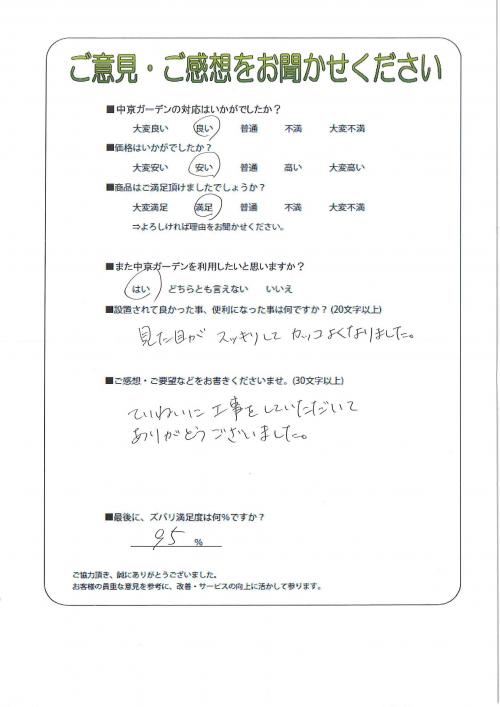 ご意見・ご感想をお聞かせください
■中京ガーデンの対応はいかがでしたか？
大変良い 良い 普通 不満 大変不満
■価格はいかがでしたか？
大変安い 安い 普通 高い 大変高い
■商品はご満足頂けましたでしょうか？
大変満足 満足 普通 不満 大変不満
⇒よろしければ理由をお聞かせください。
■また中京ガーデンを利用したいと思いますか？
はい どちらとも言えない いいえ
■設置されて良かった事、便利になった事は何ですか？(20文字以上)
見た目が スッキリして カッコよくなりました。
■ご感想・ご要望などをお書きくださいませ。(30文字以上)
ていねいに工事をしていただいて
ありがとうございました。
■最後に、ズバリ満足度は何％ですか？
95 ％
ご協力頂き、誠にありがとうございました。
お客様の貴重な意見を参考に、改善・サービスの向上に活かして参ります。